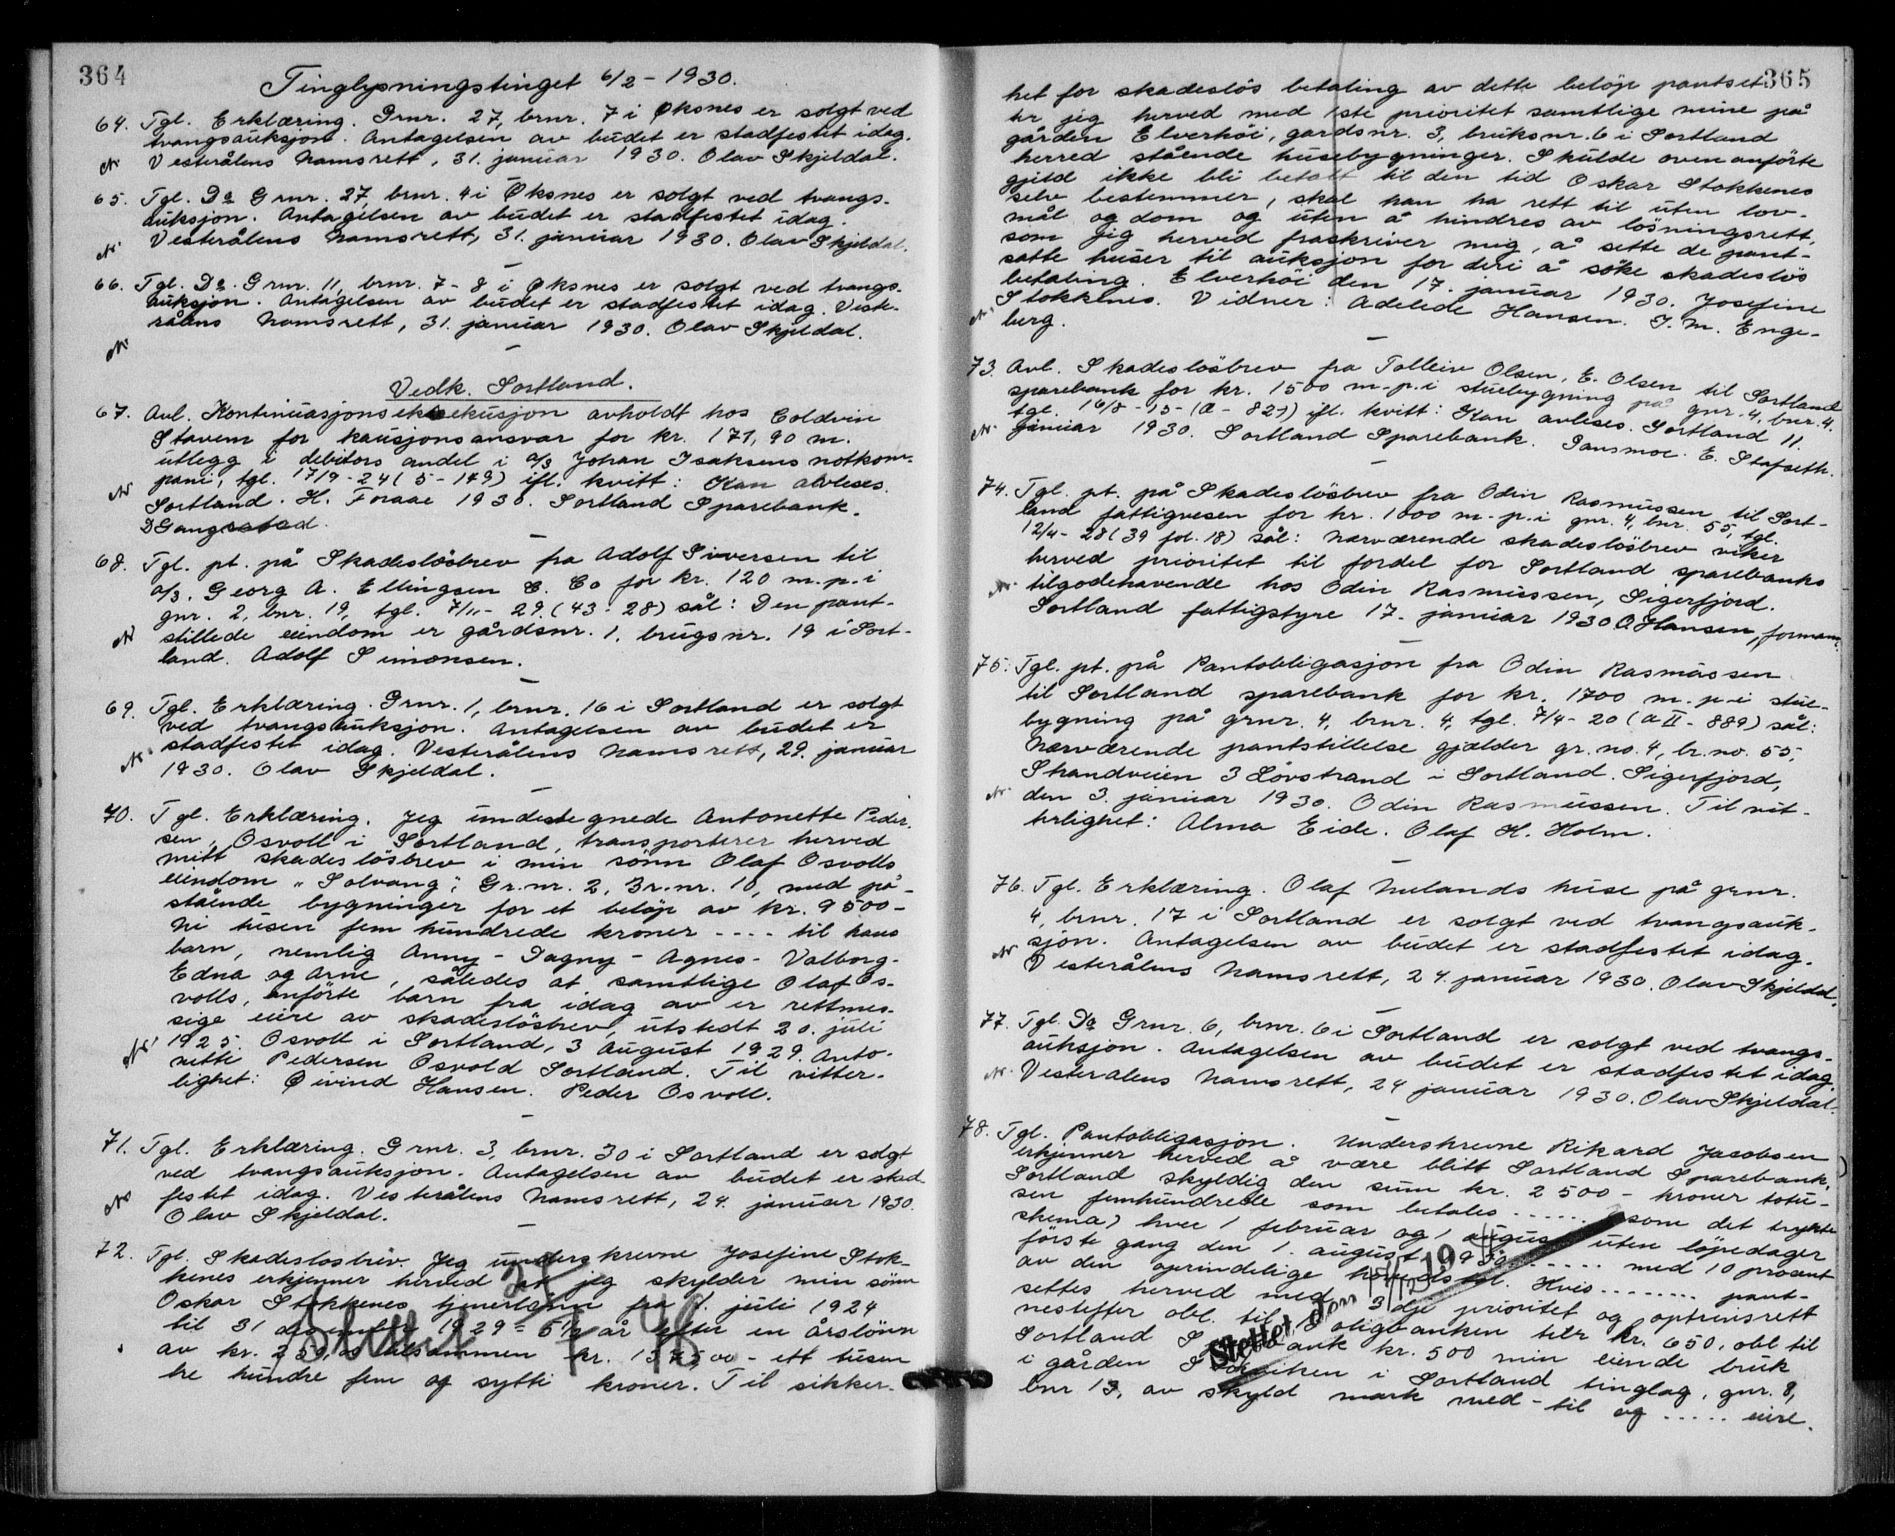 364
Tinglysningstinget 6/2 - 1930.
64. Tgl. Erklæring. Grnr. 27, brnr. 7 i Øksnes er solgt ved
tvangsauksjon. Antagelsen av budet er stadfestet idag.
Vesterålens Namsrett, 31. januar 1930. Olav Skjeldal.
65. Tgl. Do Grnr. 27, brnr. 4 i Øksnes er solgt ved tvangs-
auksjon. Antagelsen av budet er stadfestet idag.
Vesterålens Namsrett, 31. januar 1930. Olav Skjeldal.
66. Tgl. Do. Grnr. 11, brnr. 7-8 i Øksnes er solgt ved tvangs-
auksjon. Antagelsen av budet er stadfestet idag. Veste-
rålens Namsrett, 31. januar 1930. Olav Skjeldal.
Vedk. Sortland.
67. Avl. Kontinuasjonseksekusjon avholdt hos Coldvin
Stavem for kausjonsansvar for kr. 171,90 m.
utlegg i debitors andel i a/s Johan Isaksens notkom-
pani, tgl. 17/9-24 (5-149) ifl. kvitt: Kan avleses.
Sortland. H. Foraae 1930. Sortland Sparebank.
68. Tgl. pt. på Skadesløsbrev fra Adolf Siversen til
a/s. Georg A. Ellingsen & Co for kr. 120 m. p. i
gnr. 2, bnr. 19, tgl. 7/11-29. (43-28) sål: Den pant-
stillede eiendom er gårdsnr. 1. brugsnr. 19 i Sort-
land. Adolf Simonsen.
69. Tgl. Erklæring. Grnr. 1, brnr. 16 i Sortland er solgt
ved tvangsauksjon. Antagelsen av budet er
stadfestet idag. Vesterålens Namsrett, 29. januar
1930. Olav Skjeldal.
70. Tgl. Erklæring. Jeg undestegnede Antonette Peder-
sen, Osvoll i Sortland, transporterer herved
mitt skadesløsbrev i min sønn Olaf Osvolls
eiendom "Solvang", Gr.nr. 2, Br.nr. 10, med på-
stående bygninger for et beløp av kr. 9500-
ni tusen fem hundrede kroner - - - - til hans
barn, nemlig Anny - Dagny - Agnes - Valborg -
Edna og Arne, således at samtlige Olaf Os-
volls, anførte barn fra idag av er rettmes-
sige eiere av skadesløsbrev utstedt 20. juli
1925. Osvoll i Sortland, 3 August 1929. Anto-
nette Pedersen Osvold Sortland. Til vitter-
lighet: Øivind Hansen. Peder Osvoll.
71. Tgl. Erklæring. Grnr. 3, brnr. 30 i Sortland er solgt
ved tvangsauksjon. Antagelsen av budet er stad-
festet idag. Vesterålens Namsrett, 24. januar 1930.
Olav Skjeldal.
72. Tgl. Skadesløsbrev. Jeg underskrevne Josefine Stok-
kenes erkjenner herved at jeg skylder min sønn
Oskar Stokkenes tjenerlønn fra 1. juli 1924
til 31 desember 1929 = 5½ år efter en årslønn
av kr. 250, tilsammen kr. 1375,00 - ett tusen
tre hundre fem og sytti kroner. Til sikker-
Slettet 25/7 48
365
het for skadesløs betaling av dette beløp pantset-
ter jeg herved med 1ste prioritet samtlige mine på
gården Elverhøi, gardsnr. 3, bruksnr. 6 i Sortland
herred stående husebygninger. Skulde ovenanførte
gjeld ikke bli betalt til den tid Oskar Stokkenes
selv bestemmer, skal han ha rett til uten lov-
mål og dom og uten å hindres av løsningsrett,
som jeg herved fraskriver mig, å sette de pant-
satte huser til auksjon for deri å søke skadesløs
betaling. Elverhøi den 17. januar 1930. Josefine
Stokkenes. Vidner: Adelede Hansen. J. M. Enge-
berg.
73. Avl. Skadesløsbrev fra Tolleiv Olsen, E. Olsen til Sortland
sparebank for kr. 1500 m. p. i stuebygning på gnr. 4, bnr. 4.
tgl. 16/8-15-(A-821) ifl. kvitt: Kan avleses. Sortland 11.
januar 1930. Sortland Sparebank. Sansmoe. E. Stafseth.
74. Tgl. pt. på Skadesløsbrev fra Odin Rasmussen til Sort-
land fattigvesen for kr. 1000 m. p. i gnr. 4, bnr. 55, tgl.
12/4-28 (39 fol. 18) sål: Nærværende skadesløsbrev viker
herved prioritet til fordel for Sortland sparebanks
tilgodehavende hos Odin Rasmussen, Sigerfjord.
Sortland fattigstyre 17. januar 1930 O. Hansen, formann.
75. Tgl. pt. på Pantobligasjon fra Odin Rasmussen
til Sortland sparebank for kr. 1700 m. p. i stue-
bygning på grnr. 4, brnr. 4, tgl. 7/4-20 (A II - 889) sål:
Nærværende pantstillelse gjælder gr. no. 4, br. no. 55,
Strandveien 3 Løvstrand i Sortland. Sigerfjord,
den 3. januar 1930. Odin Rasmussen. Til vit-
terlighet: Alma Eide. Olaf H. Holm.
76. Tgl. Erklæring. Olaf Nulands huse på grnr.
4, brnr. 17 i Sortland er solgt ved tvangsauk-
sjon. Antagelsen av budet er stadfestet idag.
Vesterålens Namsrett, 24. januar 1930. Olav Skjeldal.
77. Tgl. Do Grnr. 6, brnr. 6 i Sortland er solgt ved tvangs-
auksjon. Antagelsen av budet er stadfestet idag.
Vesterålens Namsrett, 24 januar 1930. Olav Skjeldal.
78. Tgl. Pantobligasjon. Underskrevne Rikard Jacobsen
erkjenner herved å være blitt Sortland Sparebank,
Sortland skyldig den sum kr. 2500 - kroner totu-
sen femhundrede som betales ...... (som det trykte
skema) hver 1 februar og 1 august uten løpedager
første gang den 1. august 1930 ...... med 10 procent
av den oprindelige hovedstol. Hvis ........ pant-
settes herved med 3dje prioritet og optrinsrett
nestefter obl. til Boligbanken kr. 650, obl til
Sortland Sparebank kr. 500 min eiende bruk
i gården i Sortland tinglag, gnr. 8,
bnr 13, av skyld mark med - til og ..... eiere.
Slettet den 19